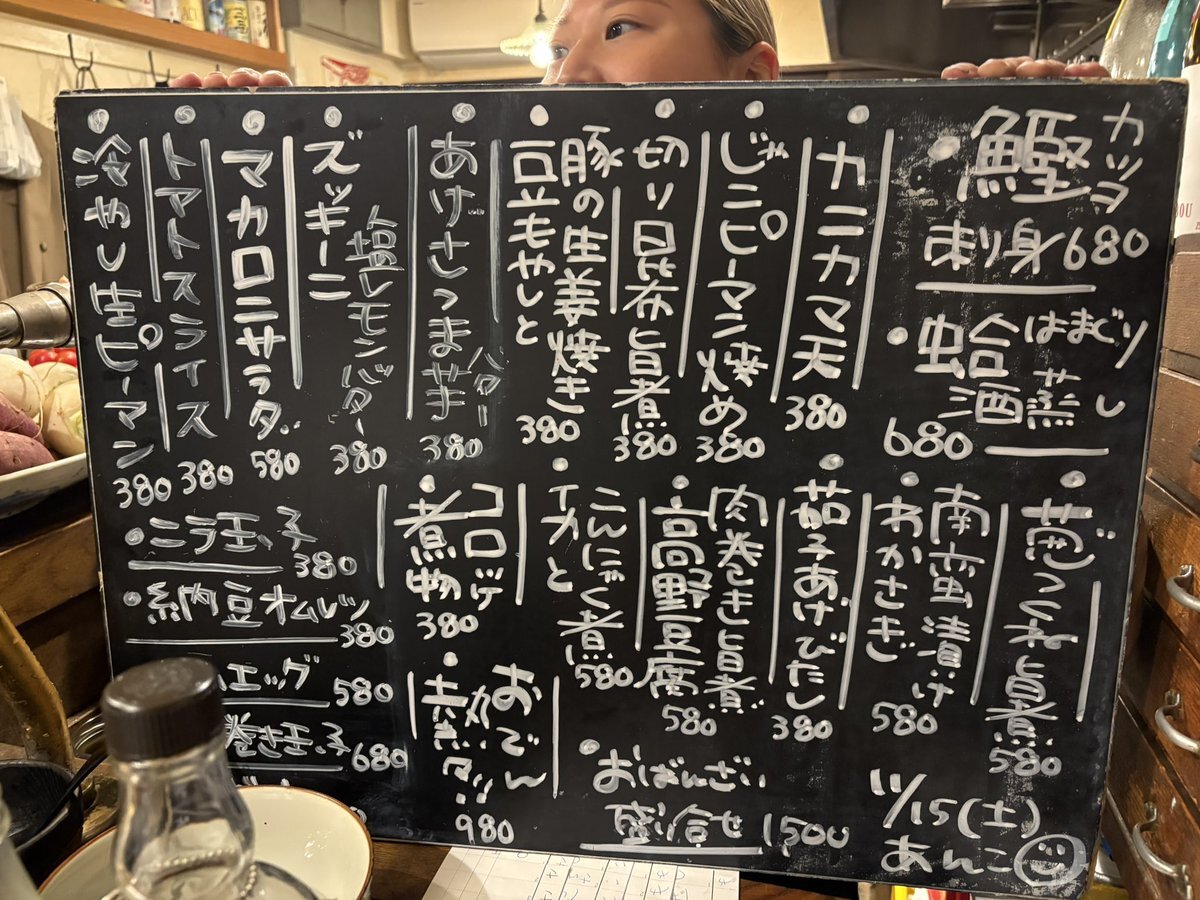 カツヲ
鰹
刺身680
はまぐり
蛤
酒蒸し
680
カニカマ天
380
じゃこピーマン炒め
380
切り昆布旨煮
380
豚の生姜焼き
豆もやしと
380
あげさつま芋
バター
380
ズッキーニ
塩レモンバター
380
マカロニサラダ
580
トマトスライス
380
冷やし生ピーマン
380
葱つくね旨煮
580
南蛮漬け
わかさぎ
580
茄子あげびたし
380
肉巻き旨煮
高野豆腐
580
こんにゃく煮
イカと
580
コロッケ
煮物
380
ニラ玉子
380
納豆オムレツ
380
エッグ 580
巻き玉子 680
おでん
980
おばんざい
盛り合せ 1,500
11/15(土)
あんこ